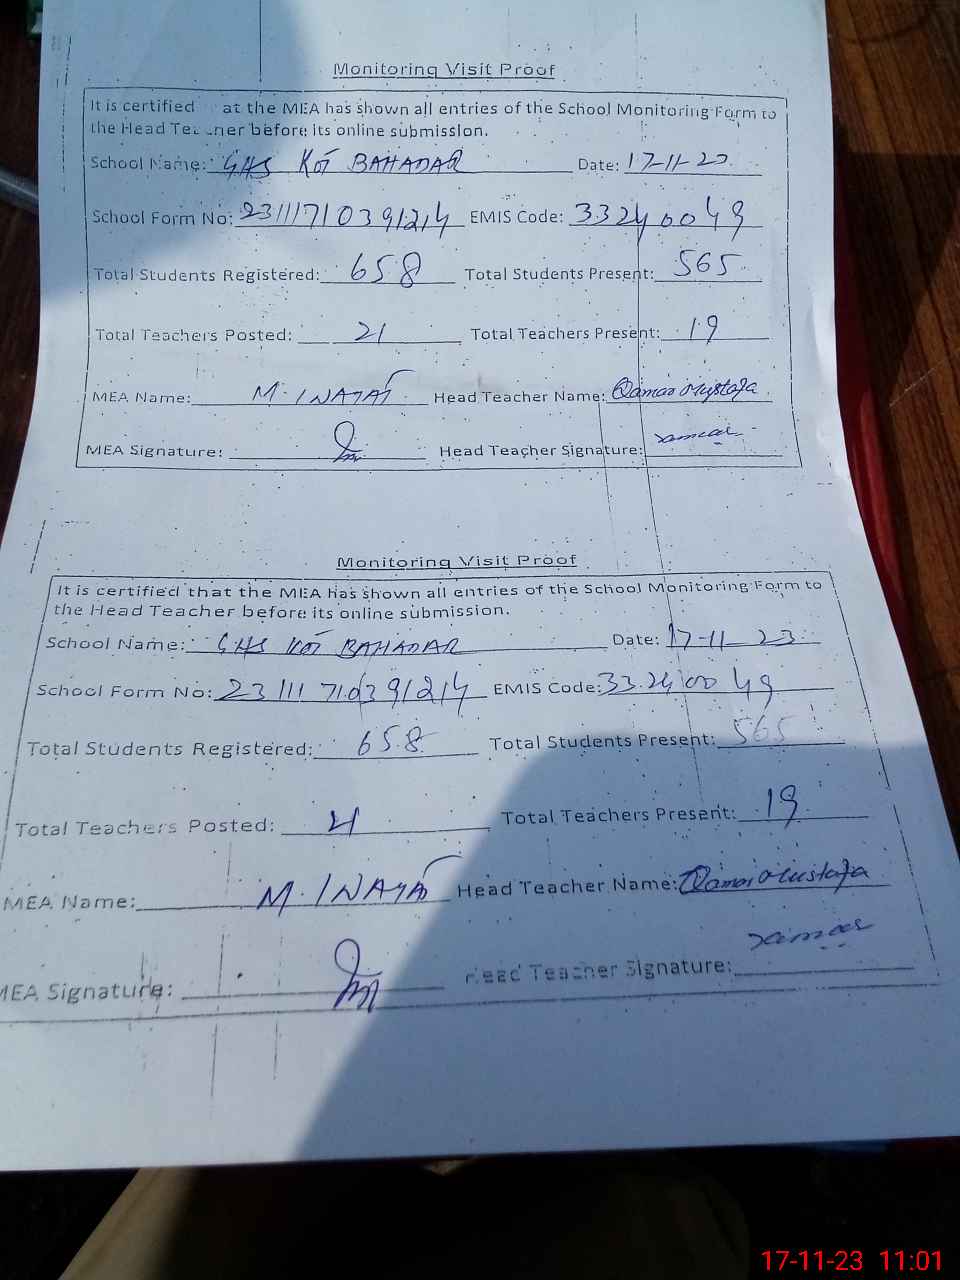 Monitoring Visit Proof
It is certified at the MEA has shown all entries of the School Monitoring Form to
the Head Teacher before its online submission.
School Name: GHS KOT BAHADAR Date: 17-11-23
School Form No: 23111710391214 EMIS Code: 33240049
Total Students Registered: 658 Total Students Present: 565
Total Teachers Posted: 21 Total Teachers Present: 19
MEA Name: M. INAYAT Head Teacher Name: Qamar Mustafa
MEA Signature: Head Teacher Signature:
Monitoring Visit Proof
It is certified that the MEA has shown all entries of the School Monitoring Form to
the Head Teacher before its online submission.
School Name: GHS KOT BAHADAR Date: 17-11-23
School Form No: 23111710391214 EMIS Code: 33240049
Total Students Registered: 658 Total Students Present: 565
Total Teachers Posted: 21 Total Teachers Present: 19
MEA Name: M. INAYAT Head Teacher Name: Qamar Mustafa
MEA Signature: Head Teacher Signature:
17-11-23 11:01